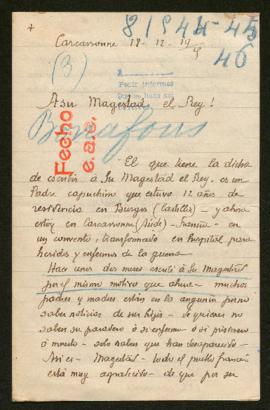 +
81944-45
46
Carcassonne 18-12-1915
(3)
Pedir informes
A su Magestad el Rey!
Bonafous
Fecho
e.a.e.
El que tiene la dicha
de escribir à Su Magestad el Rey - es un
Padre capuchino que estuvo 12 años de
residencia en Burgos (Castilla) - y ahora
estoy en Carcassonne (Aude) - Francia - en
un convento transformado en hospital para
heridos y enfermos de la guerra.
Hace unos dos meses escribí à Su Magestad
por el mismo motivo que ahora - muchos
padres y madres están en la angustia por no
saber noticias de sus hijos - de quienes no
saben su paradero ó si enfermo ó si prisionero
ó muerto - solo saben que han desaparecido.
Así es - Magestad - todo el pueblo francés
está muy agradecido - de que por su